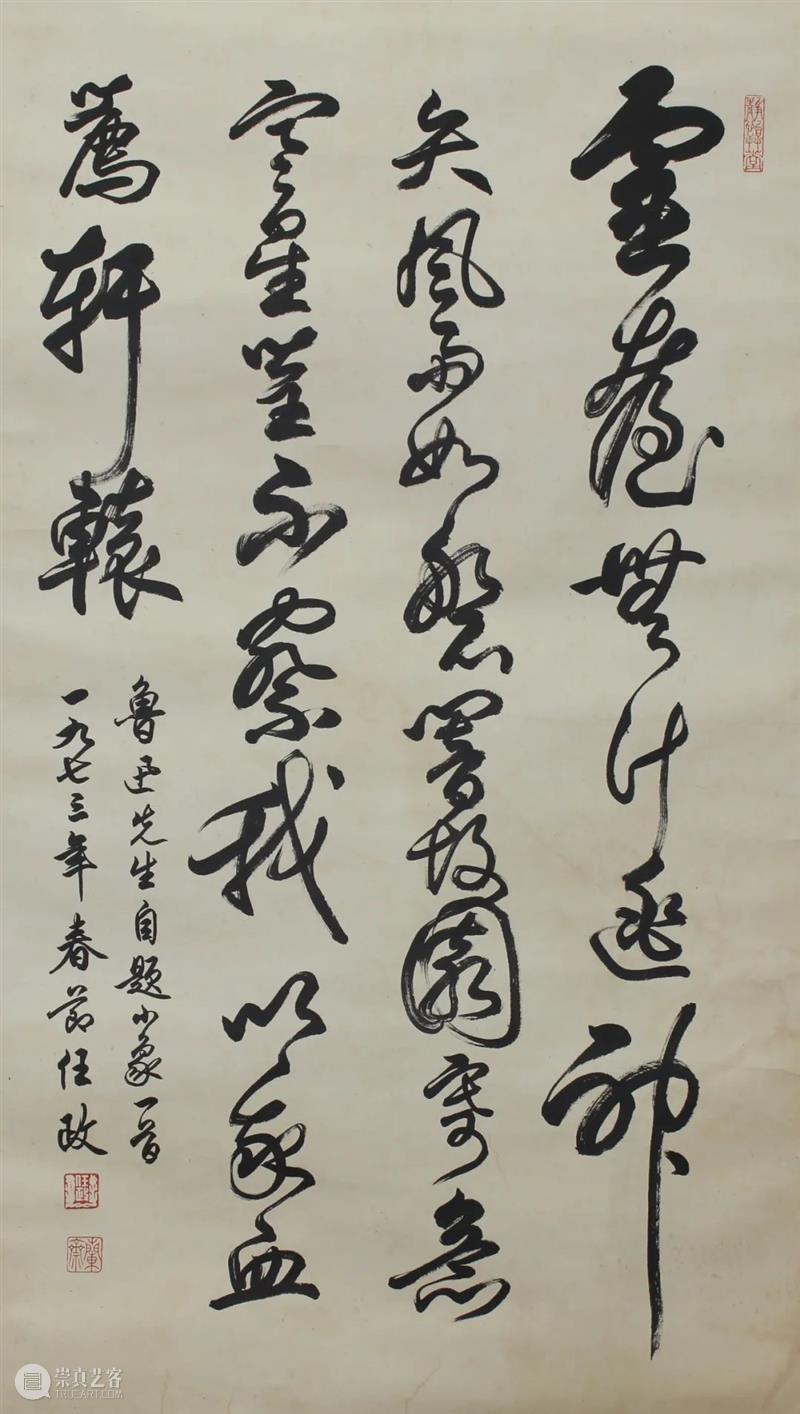 靈臺無計逃神
矢風雨如磐闇故園寄意
寒星荃不察我以我血
薦軒轅
魯迅先生自題小象一首
一九七三年春節任政
蘭齋
崇真艺客
TRUEART.COM